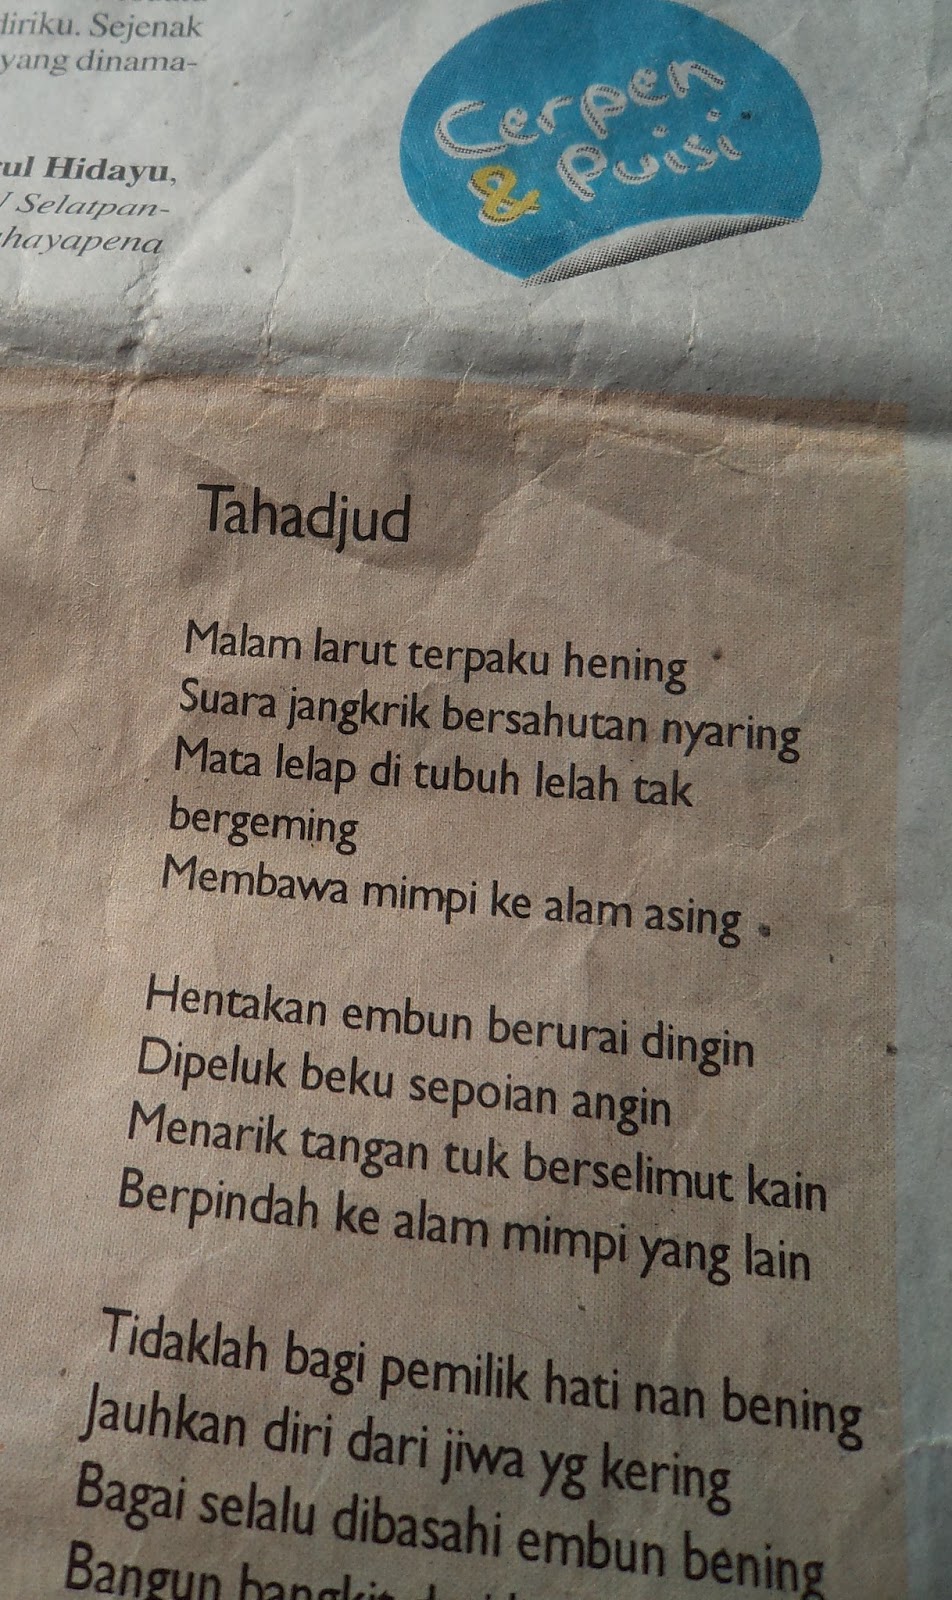 diriku. Sejenak
yang dinama-
Hidayu,
Selatpan-
hayapena
Cerpen
& Puisi
Tahadjud
Malam larut terpaku hening
Suara jangkrik bersahutan nyaring
Mata lelap di tubuh lelah tak
bergeming
Membawa mimpi ke alam asing
Hentakan embun berurai dingin
Dipeluk beku sepoian angin
Menarik tangan tuk berselimut kain
Berpindah ke alam mimpi yang lain
Tidaklah bagi pemilik hati nan bening
Jauhkan diri dari jiwa yg kering
Bagai selalu dibasahi embun bening
Bangun bangkit